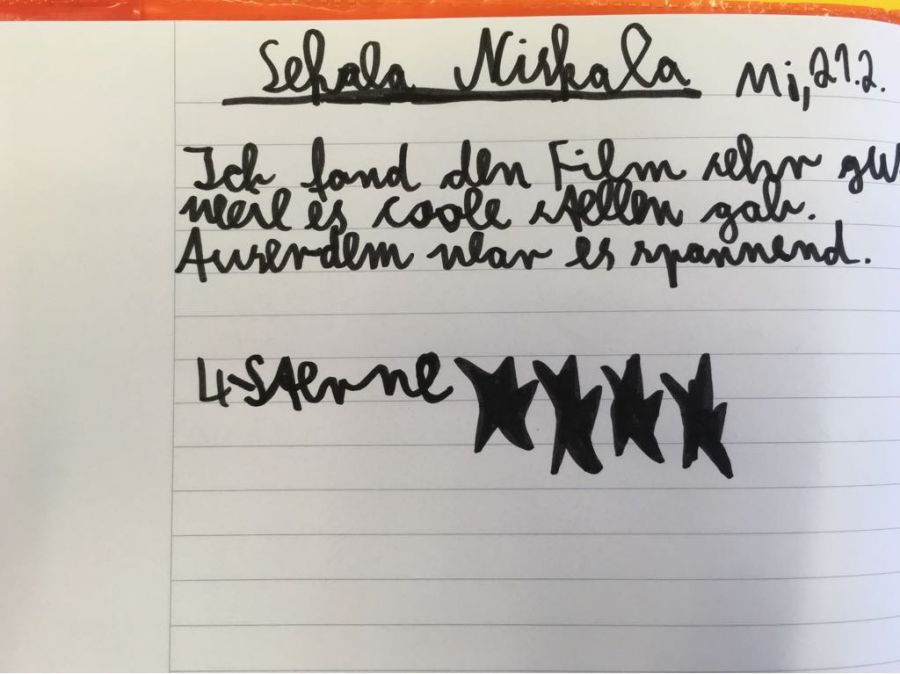 Sekala Niskala Mi, 21.2.
Ich fand den Film sehr gu
weil es coole stellen gab.
Auserdem war es spannend.
4 Sterne